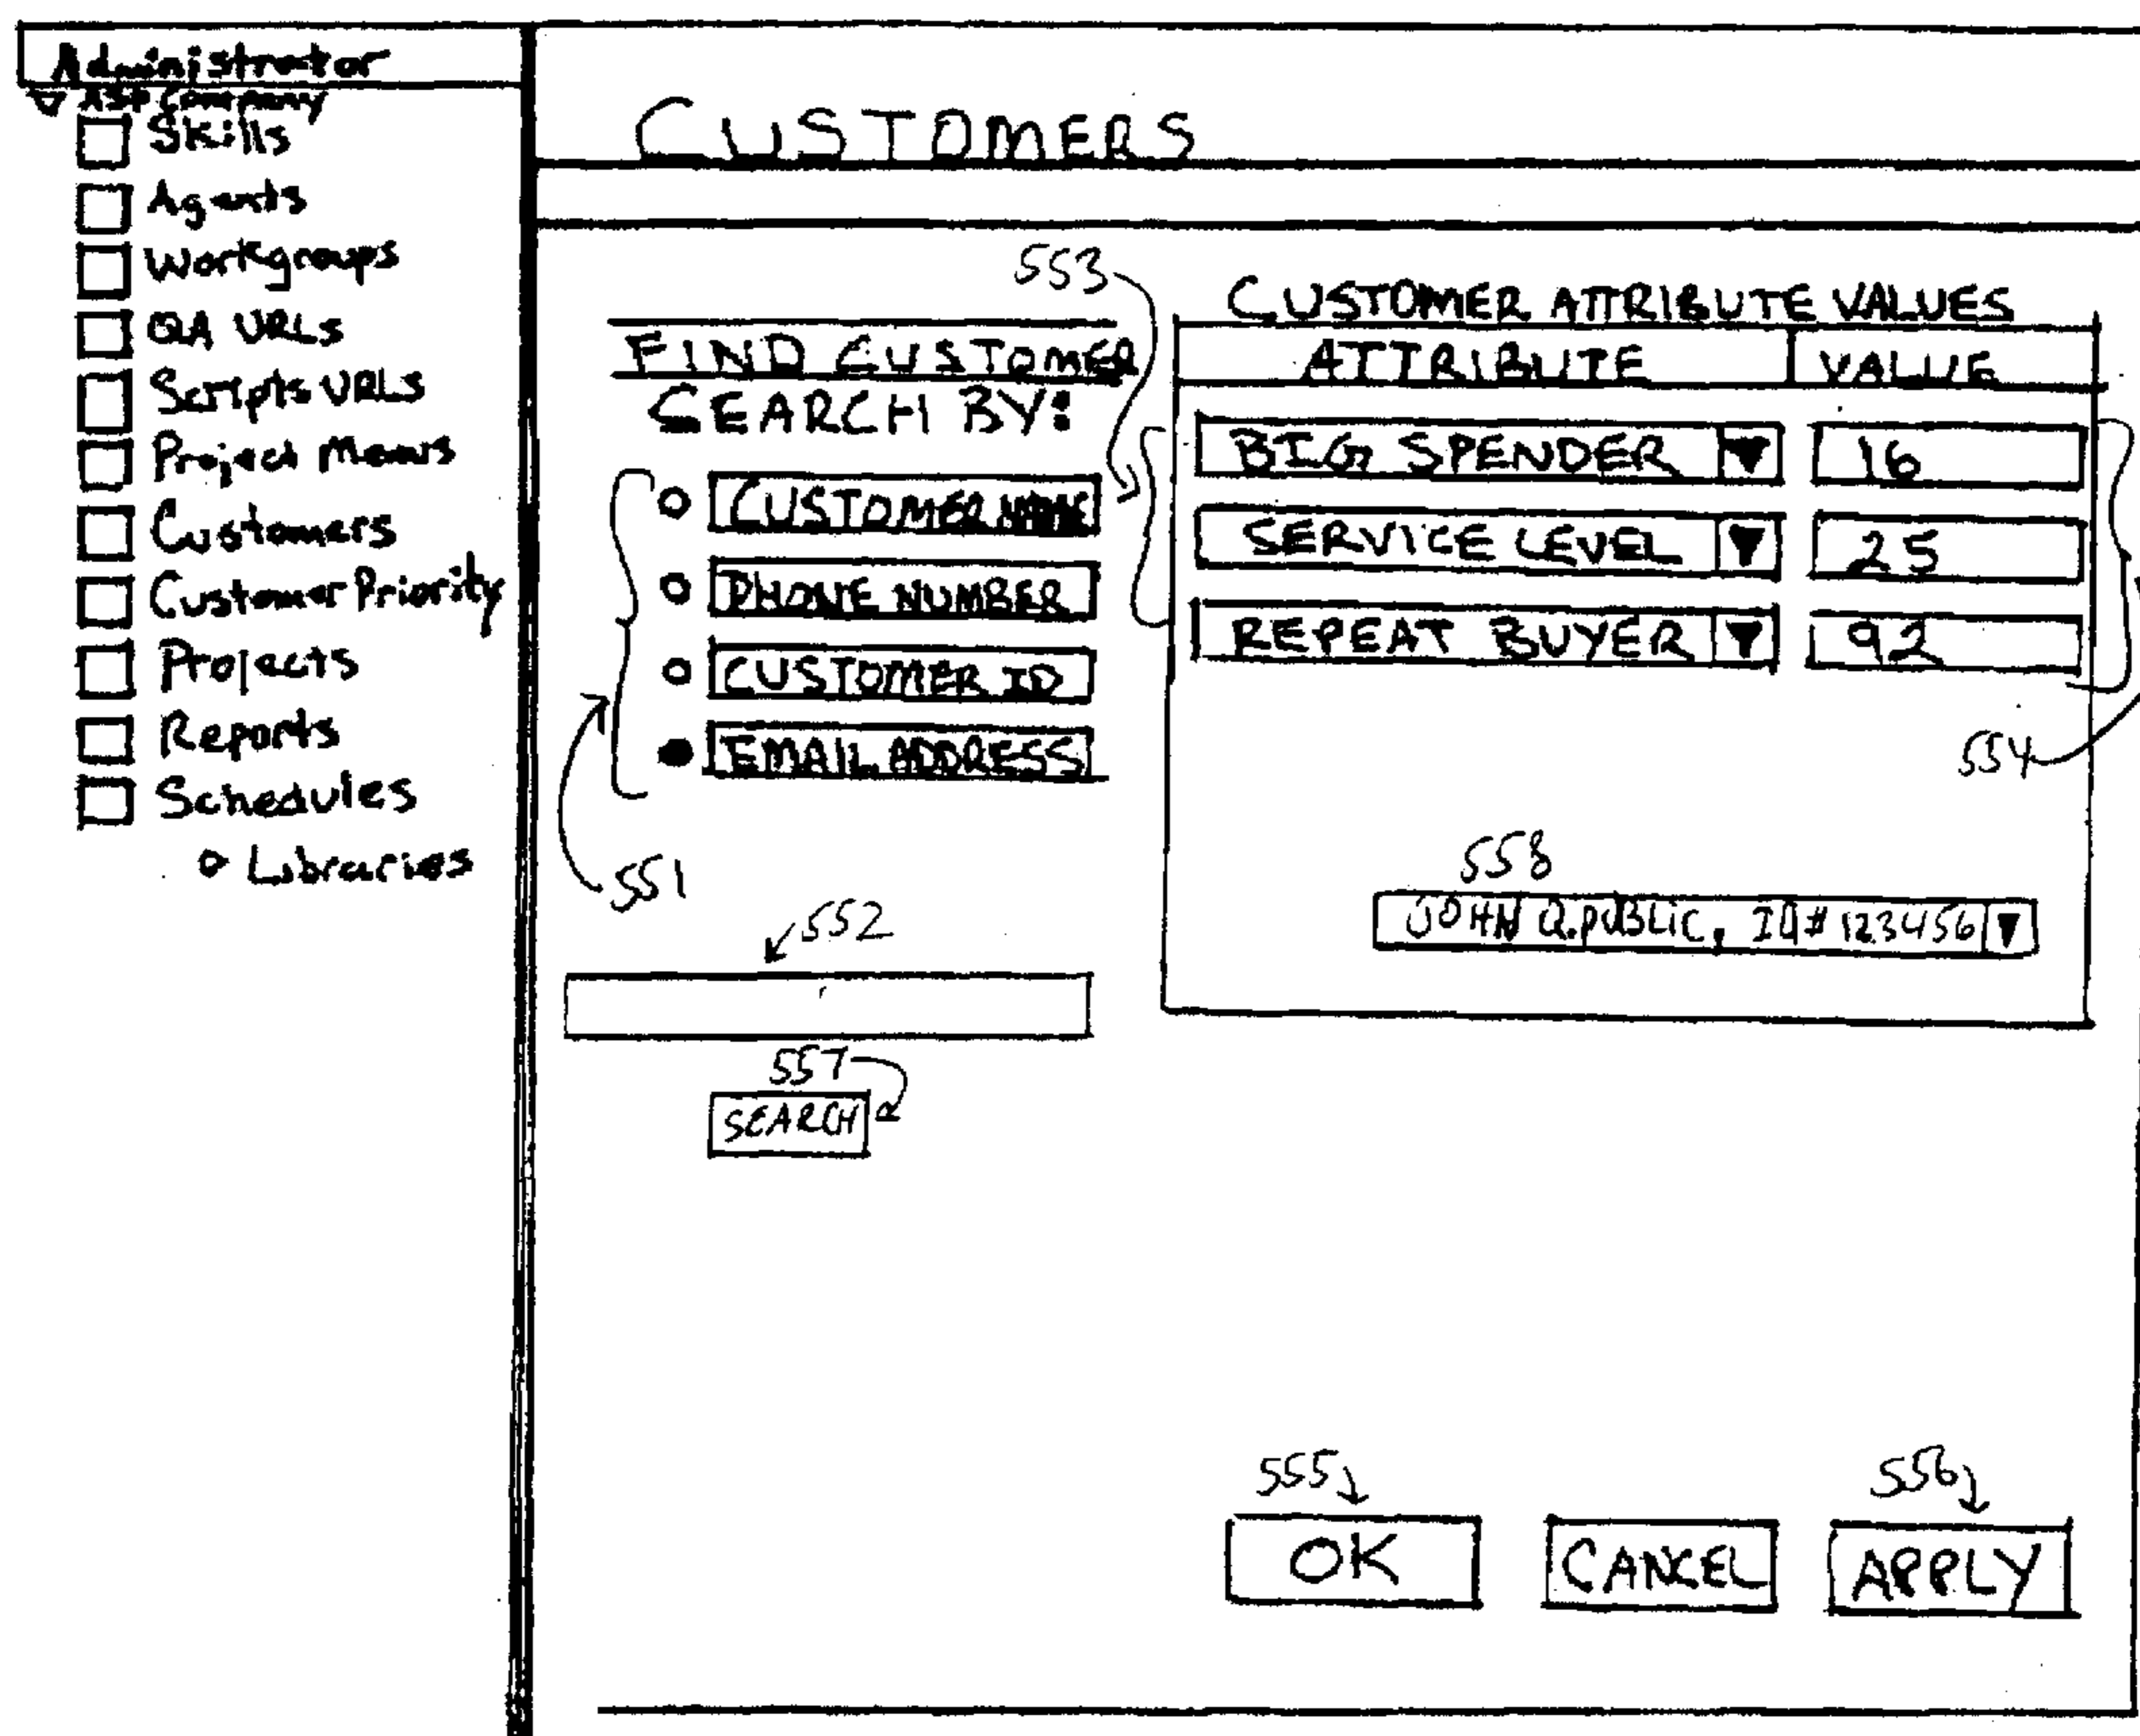 Administrator
ASP Company
Skills
Agents
Workgroups
QA URLs
Scripts URLs
Project Menus
Customers
Customer Priority
Projects
Reports
Schedules
Libraries
CUSTOMERS
553
FIND CUSTOMER
SEARCH BY:
CUSTOMER NAME
PHONE NUMBER
CUSTOMER ID
EMAIL ADDRESS
551
552
557
SEARCH
CUSTOMER ATTRIBUTE VALUES
ATTRIBUTE VALUE
BIG SPENDER 16
SERVICE LEVEL 25
REPEAT BUYER 92
554
558
JOHN Q. PUBLIC, ID# 123456
555 556
OK CANCEL APPLY